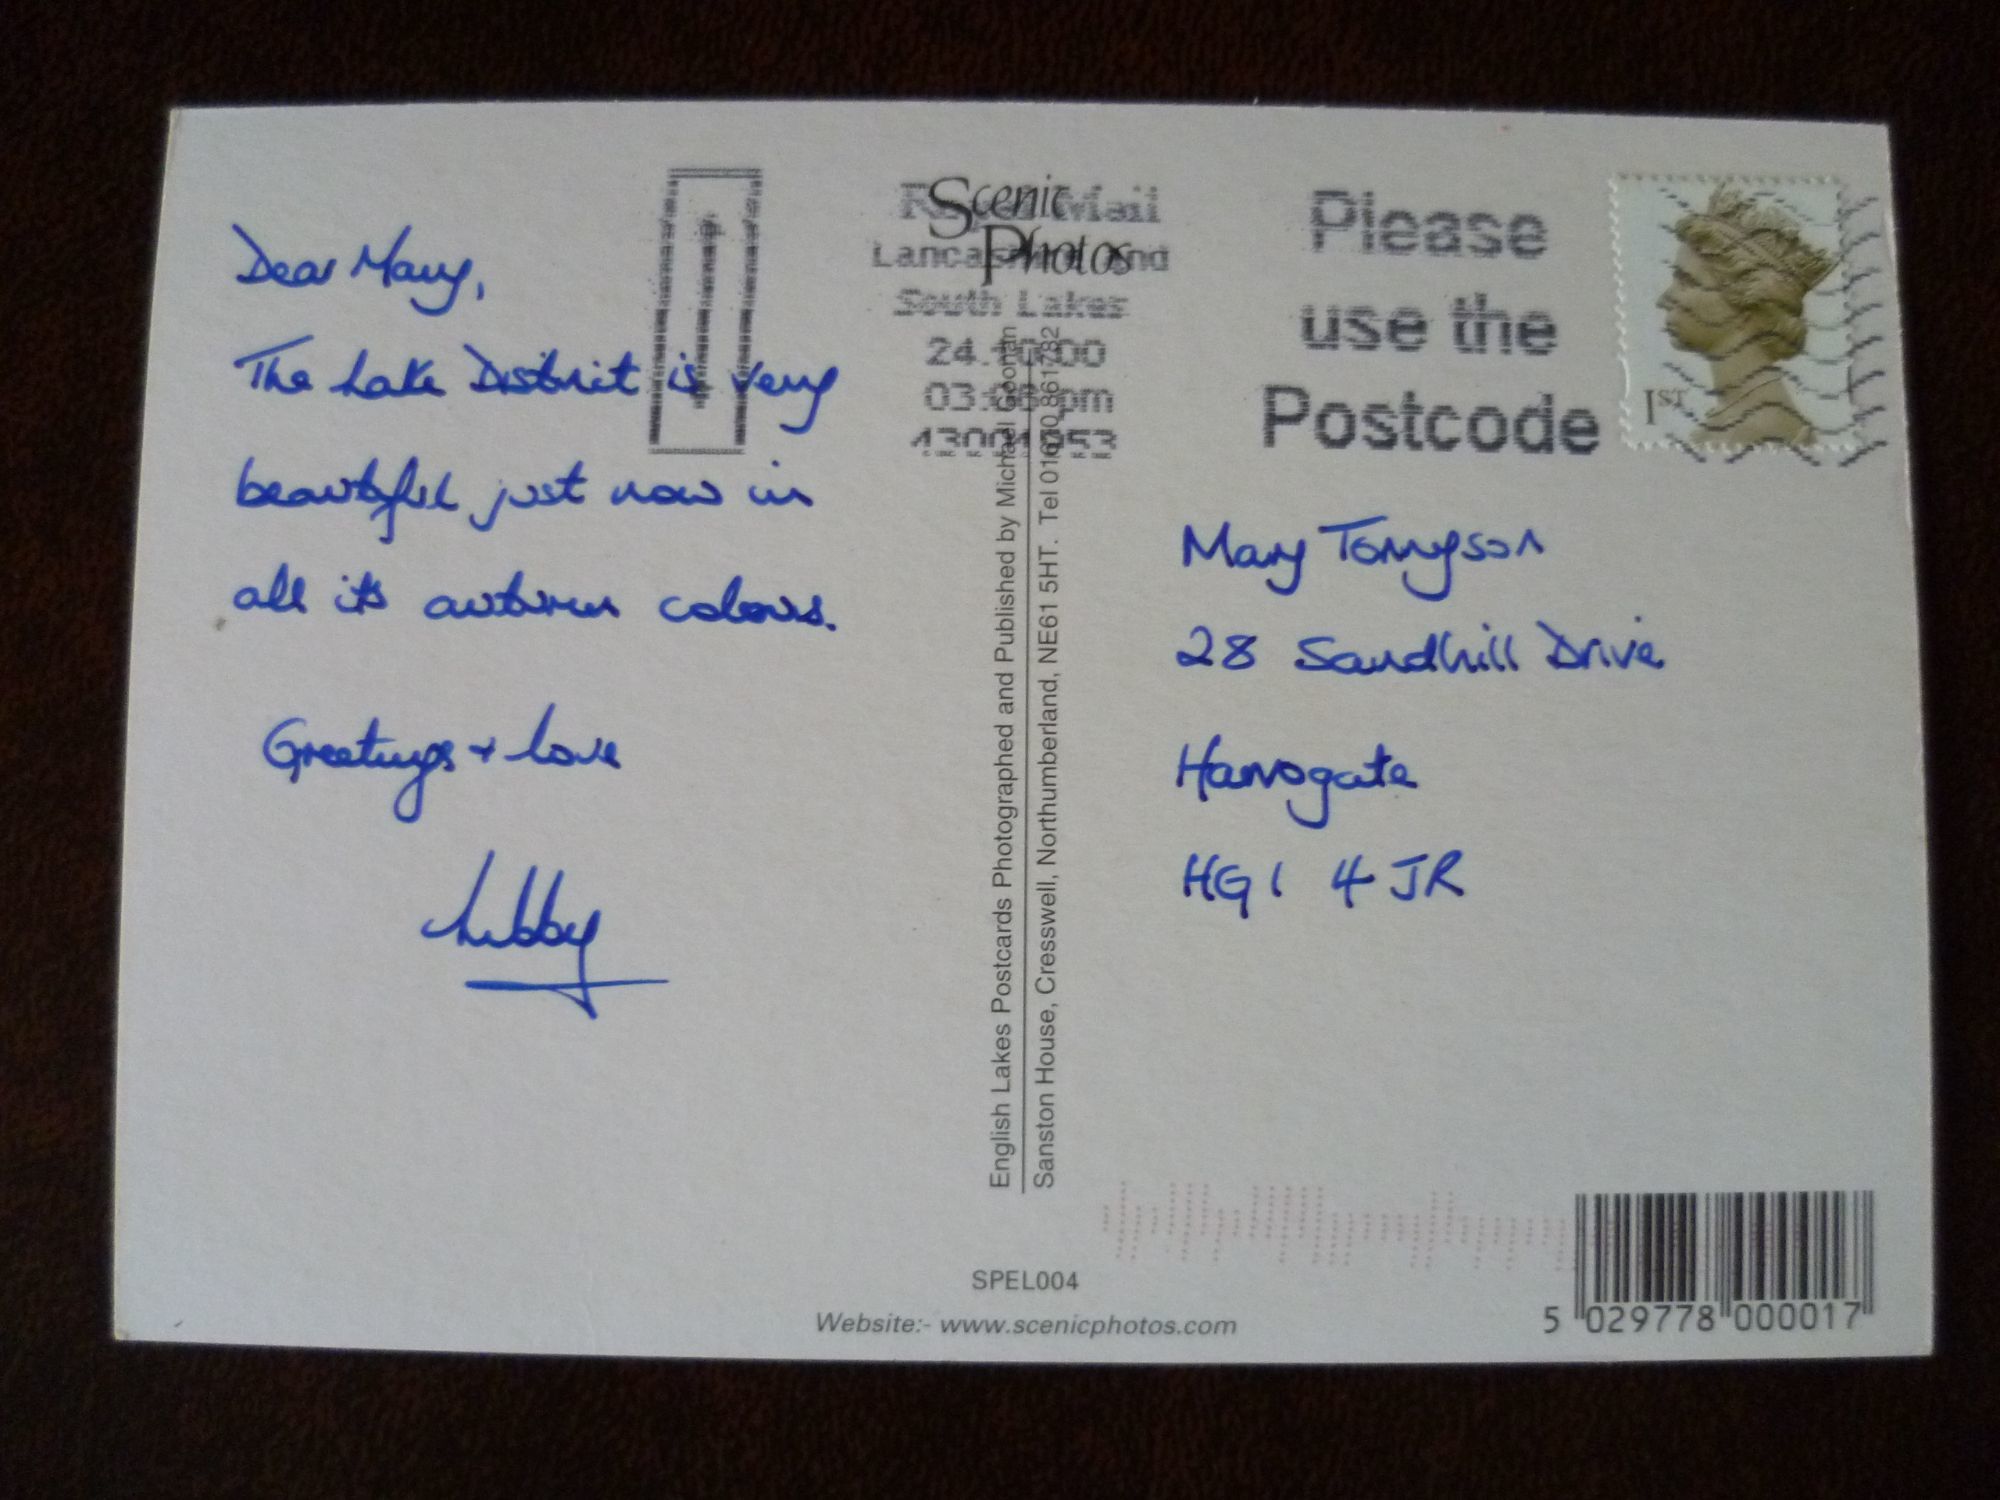 Dear Mary,
The Lake District is very
beautiful just now in
all its autumn colours.
Greetings + love
Libby
Scenic
Photos
Royal Mail
Lancashire and
South Lakes
24
03 pm
Please
use the
Postcode
1ST
Mary Tonnyson
28 Sandhill Drive
Harrogate
HG1 4JR
English Lakes Postcards Photographed and Published by Michael
Sanston House, Cresswell, Northumberland, NE61 5HT. Tel 01670 861782
SPEL004
Website:- www.scenicphotos.com
5 029778 000017